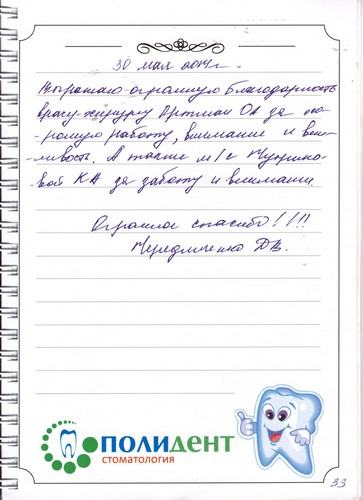 30 мая 2014г.
Выражаю огромную благодарность
врачу-хирургу Артман ОА за хо-
-рошую работу, внимание и веж-
ливость. А также м/с
-вой КА за заботу и внимание.
Огромное спасибо!!!!
Чередниченко ДВ.
ПОЛИДЕНТ
СТОМАТОЛОГИЯ
33